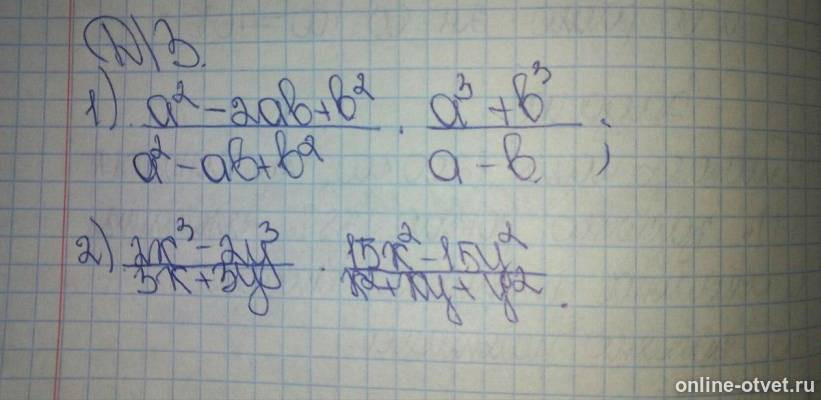 Д/З.
1) (a² - 2ab + b²)/(a² - ab + b²) · (a³ + b³)/(a - b);
2) (2x³ - 2y³)/(5x + 5y) · (15x² - 15y²)/(x² + xy + y²).
online-otvet.ru